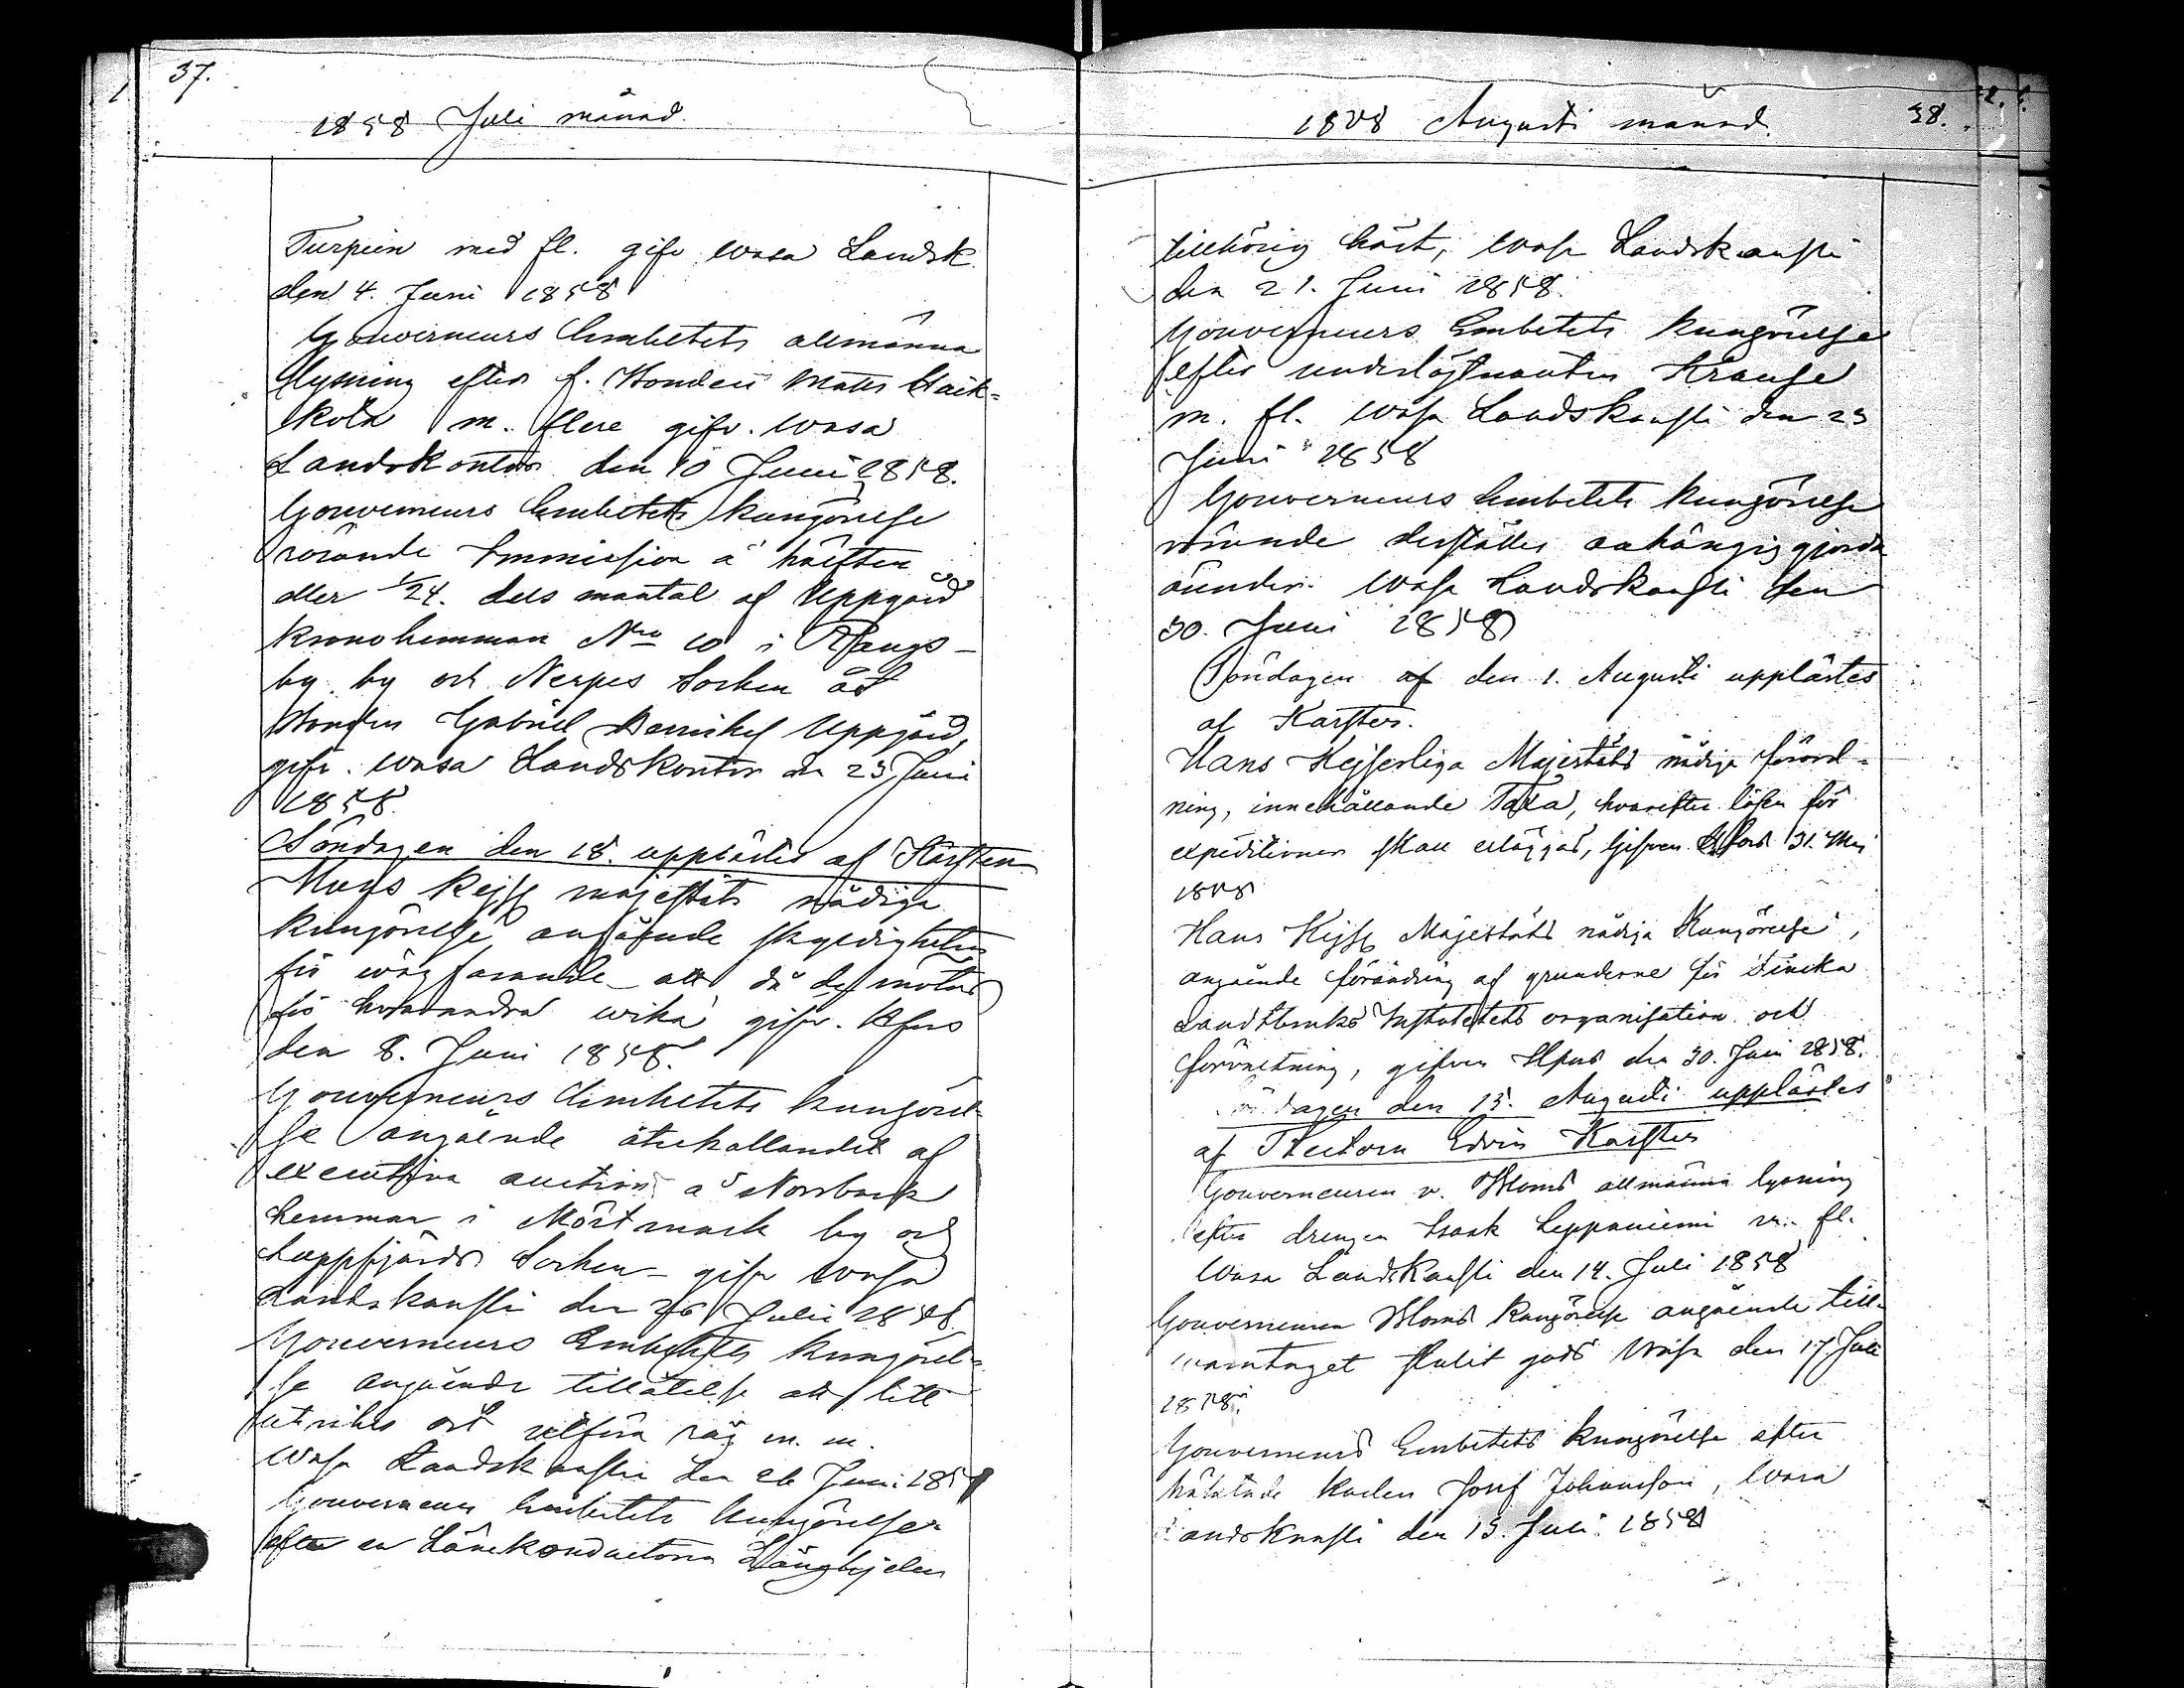 37.
1858 Juli månad.
Turpein med fl. gifv Wasa Landsk.
den 4. Juni 1858
Gouverneurs Embetets allmänna
lysning efter f. Bonden Matts Haik-
kola m. flere gifv. Wasa
Landskontor den 10 Juni 1858.
Gouverneurs Embetets kungörelse
rörande Immission å hälften
eller 1/24. dels mantal af Uppgård
kronohemman Nro 10 i Rangs-
by by och Nerpes Socken åt
Bonden Gabriel Uppgård,
gifv. Wasa Landskontor den 23 Juni
1858.
Söndagen den 18. upplästes af Karsten
Hans Kejs majestäts nådiga
kungörelse angående skyldigheten
för wägfarande att då de mötas
för hvarandra wika gifv. Hfors
den 8. Juni 1858.
Gouverneurs Embetets kungörel-
se angående återkallandet af
executiva auction å Norrback
hemman i Mörtmark by och
Lappfjärds Socken gifv Wasa
Landskansli den 26 Juli 1858.
Gouverneurs Embetets kungörel-
se angående tillåtelse att till
utrikes ort utföra råg m. m.
Wasa Landskansli den 26 Juni 1858
Gouverneurs Embetets kungörelse
efter en Länekonduktoren Långhjelm
1858 Augusti månad.
38.
tillhörig häst, Wasa Landskansli
den 21. Juni 1858.
Gouverneurs Embetets kungörelse
efter underlöjtnanten Krause
m. fl. Wasa Landskansli den 23
Juni 1858
Gouverneurs Embetets kungörelse
rörande derstädes anhängiggjorda
ärender. Wasa Landskansli den
30. Juni 1858
Söndagen af den 1. Augusti upplästes
af Karsten.
Hans Kejserliga Majestäts nådiga förord-
ning, innehållande Taxa, hvarefter lösen för
expeditioner skall erläggas, Gifven Hfors 31. Maj
1858
Hans Kejs Majestäts nådiga Kungörelse,
angående förändring af grunderne för Finska
Landtbruks Institutets organisation och
förrättning, gifven Hfors den 30. Juni 1858.
Söndagen den 15. Augusti upplästes
af Edvin Karsten
Gouverneuren v. Bloms allmänna lysning
efter drengen Isaak Leppaniemi m. fl.
Wasa Landskansli den 14. Juli 1858
Gouverneuren Bloms kungörelse angående till-
warataget stulit gods Wasa den 17. Juli
1858.
Gouverneurs Embetets kungörelse efter
häktade karlen Josef Johansson, Wasa
Landskansli den 15. Juli. 1858